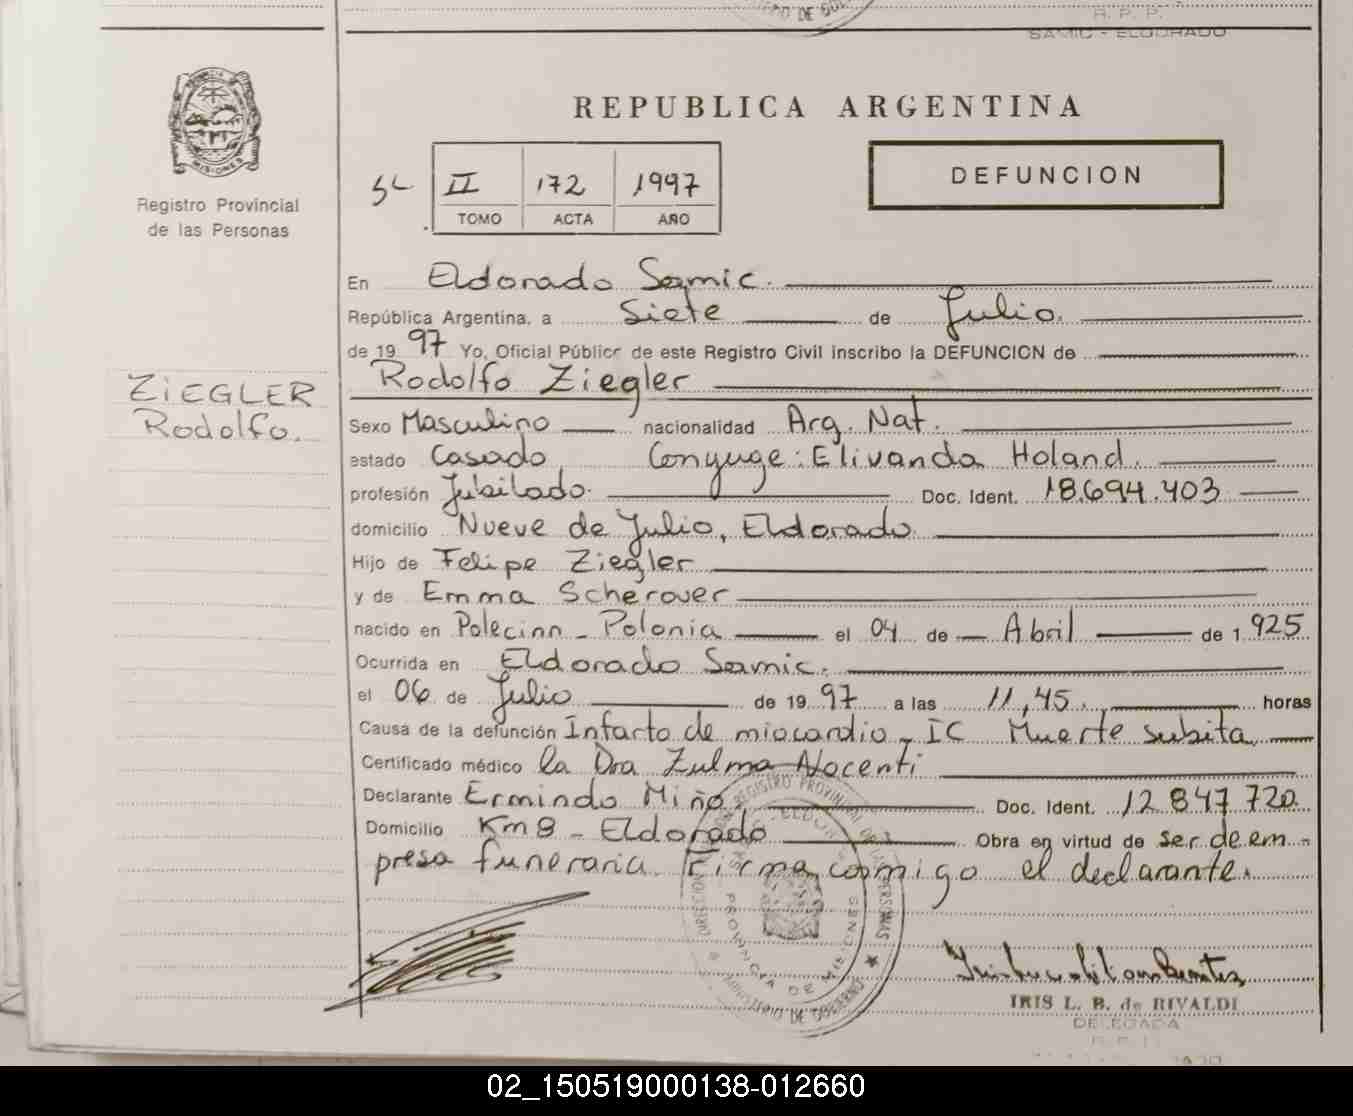 R. P. P.
SAMIC - ELDORADO
MISIONES
Registro Provincial
de las Personas
REPUBLICA ARGENTINA
II 172 1997
TOMO ACTA AÑO
DEFUNCION
En Eldorado Samic.
República Argentina, a Siete de Julio.
de 19 97 Yo, Oficial Público de este Registro Civil inscribo la DEFUNCION de
Rodolfo Ziegler
ZIEGLER
Rodolfo.
Sexo Masculino nacionalidad Arg. Nat.
estado Casado, Conyuge: Elivanda Holand.
profesión Jubilado. Doc. Ident. 18.694.403
domicilio Nueve de Julio, Eldorado
Hijo de Felipe Ziegler
y de Emma Scherover
nacido en Polecinn - Polonia el 04 de Abril de 1.925
Ocurrida en Eldorado Samic.
el 06 de Julio de 19 97 a las 11,45. horas
Causa de la defunción Infarto de miocardio - IC Muerte subita
Certificado médico la Dra Zulma Nocenti
Declarante Ermindo Miño, Doc. Ident. 12 847 720
Domicilio Km 8 - Eldorado Obra en virtud de ser de em-
presa funeraria. Firma comigo el declarante.
IRIS L. B. de RIVALDI
DELEGADA
02_150519000138-012660